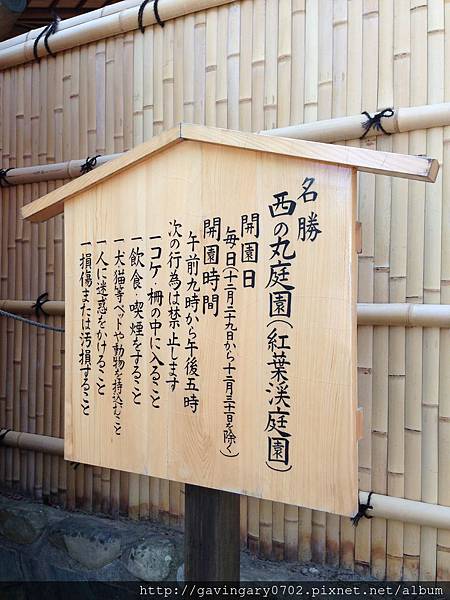 名勝
西の丸庭園(紅葉渓庭園)
開園日
毎日(十二月二十九日から十二月三十日を除く)
開園時間
午前九時から午後五時
次の行為は禁止します
一コケ・柵の中に入ること
一飲食・喫煙をすること
一犬猫等ペットや動物を持込むこと
一人に迷惑をかけること
一損傷または汚損すること
http://gavingary0702.pixnet.net/album